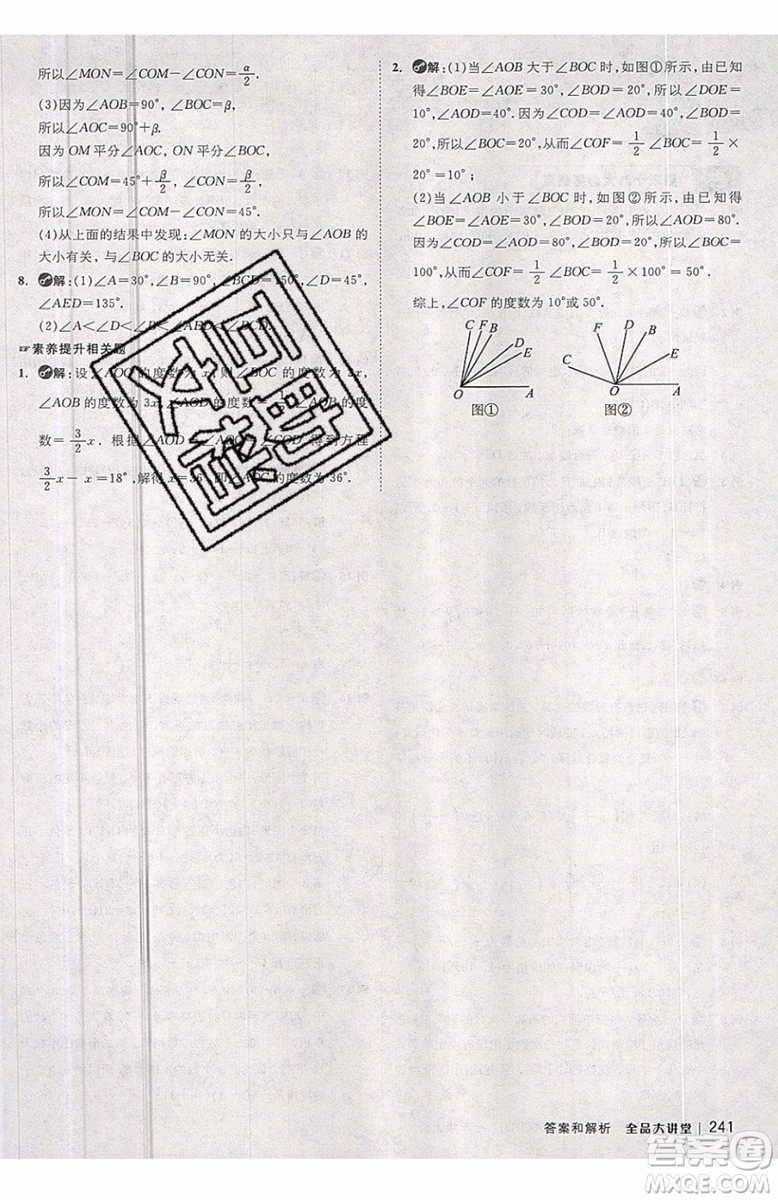 所以∠MON=∠COM-∠CON=α/2.
(3)因为∠AOB=90°,∠BOC=β,
所以∠AOC=90°+β.
因为 OM 平分∠AOC, ON 平分∠BOC,
所以∠COM=45°+β/2,∠CON=β/2.
所以∠MON=∠COM-∠CON=45°.
(4)从上面的结果中发现:∠MON 的大小只与∠AOB 的
大小有关,与∠BOC 的大小无关.
8. 解:(1)∠A=30°,∠B=90°,∠BCD=150°,∠D=45°,
∠AED=135°.
(2)∠A<∠D<∠B<∠AED<∠BCD.
☞素养提升相关题
1. 解:设∠AOC 的度数为 x,则∠BOC 的度数为 2x,
∠AOB 的度数为 3x,∠AOD 的度数=∠AOB 的度
数=3/2x. 根据∠AOD-∠AOC=∠COD,得到方程
3/2x-x=18°,解得 x=36°,即∠AOC的度数为 36°.
2. 解:(1)当∠AOB 大于∠BOC 时,如图①所示,由已知
得∠BOE=∠AOE=30°,∠BOD=20°,所以∠DOE=
10°,∠AOD=40°. 因为∠COD=∠AOD,所以∠BOC=
20°,所以∠COF=1/2∠BOC=20°,所以∠COF=1/2×
20°=10°;
(2)当∠AOB 小于∠BOC 时,如图②所示,由已知得
∠BOE=∠AOE=30°,∠BOD=20°,所以∠AOD=80°.
因为∠COD=∠AOD,所以∠COD=80°,所以∠BOC=
100°,所以∠COF=1/2∠BOC=1/2×100°=50°.
综上,∠COF 的度数为 10°或 50°.
C F B D E O A
图①
F D B C E O A
图②
答案和解析 全品大讲堂 | 241
答案圈
MXQE.COM